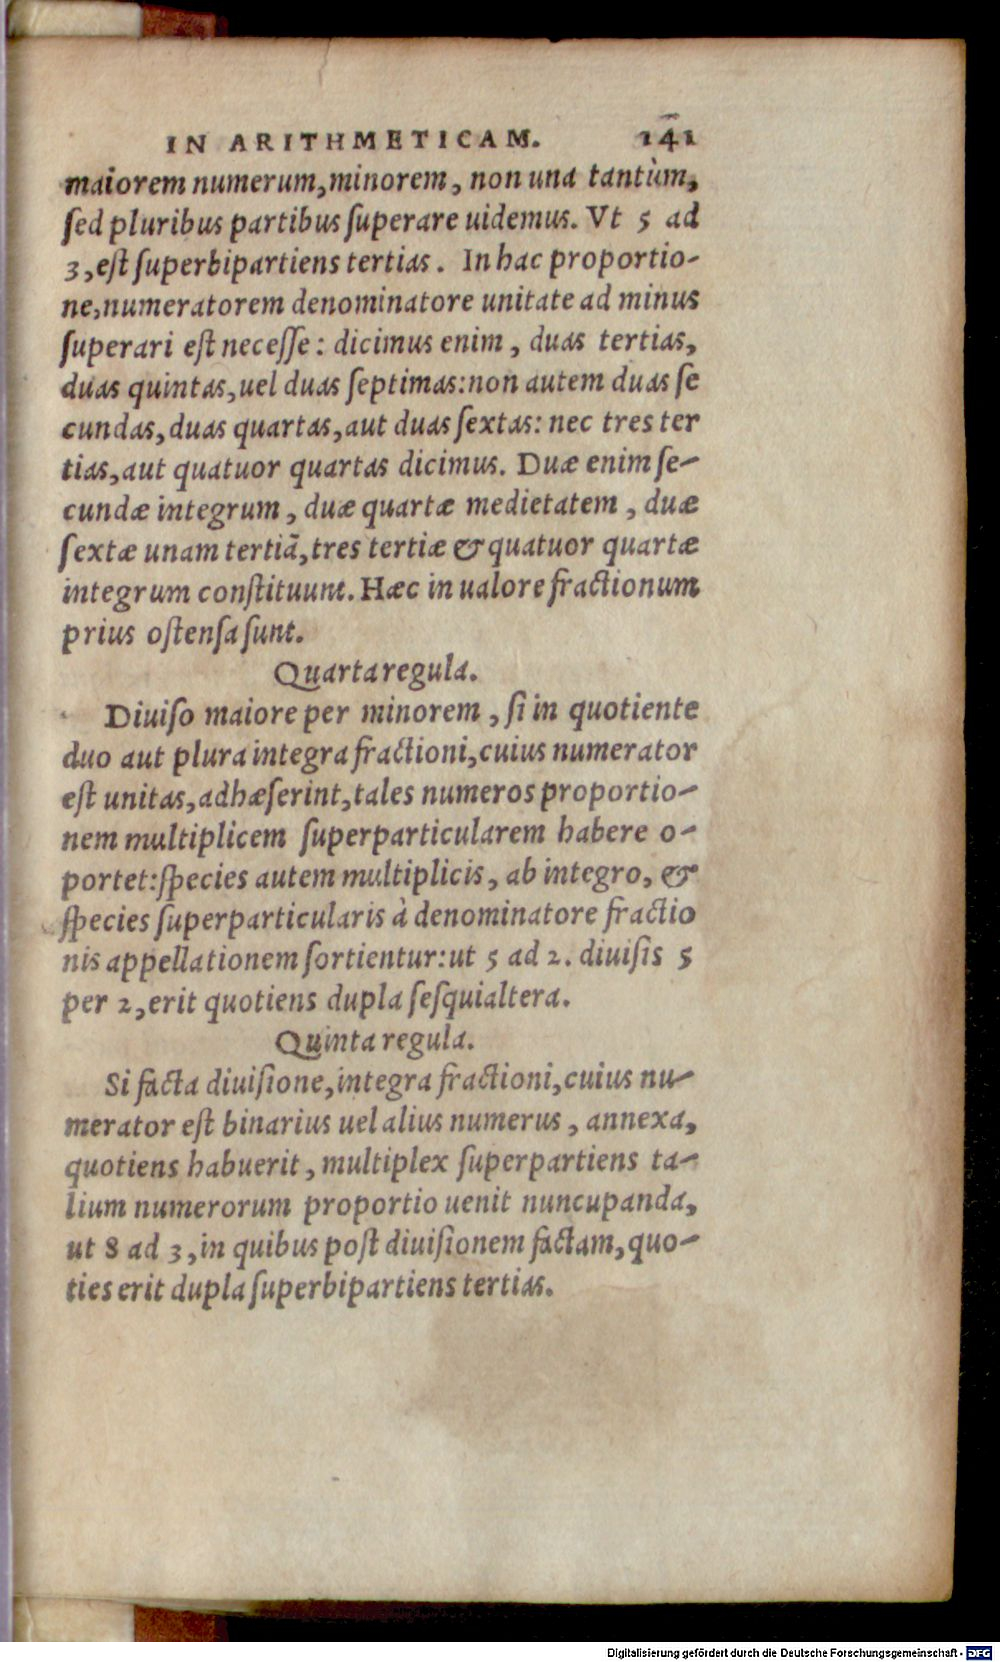 IN ARITHMETICAM. 141
maiorem numerum, minorem, non una tantùm,
ſed pluribus partibus ſuperare uidemus. Vt 5 ad
3, eſt ſuperbipartiens tertias. In hac proportio-
ne, numeratorem denominatore unitate ad minus
ſuperari eſt neceſſe: dicimus enim, duas tertias,
duas quintas, uel duas ſeptimas: non autem duas ſe
cundas, duas quartas, aut duas ſextas: nec tres ter
tias, aut quatuor quartas dicimus. Duæ enim ſe-
cundæ integrum, duæ quartæ medietatem, duæ
ſextæ unam tertiã, tres tertiæ & quatuor quartæ
integrum conſtituunt. Hæc in ualore fractionum
prius oſtenſa ſunt.
Quarta regula.
Diuiſo maiore per minorem, ſi in quotiente
duo aut plura integra fractioni, cuius numerator
eſt unitas, adhæſerint, tales numeros proportio-
nem multiplicem ſuperparticularem habere o-
portet: ſpecies autem multiplicis, ab integro, &
ſpecies ſuperparticularis à denominatore fractio
nis appellationem ſortientur: ut 5 ad 2. diuiſis 5
per 2, erit quotiens dupla ſeſquialtera.
Quinta regula.
Si facta diuiſione, integra fractioni, cuius nu-
merator eſt binarius uel alius numerus, annexa,
quotiens habuerit, multiplex ſuperpartiens ta-
lium numerorum proportio uenit nuncupanda,
ut 8 ad 3, in quibus poſt diuiſionem factam, quo-
ties erit dupla ſuperbipartiens tertias.
Digitalisierung gefördert durch die Deutsche Forschungsgemeinschaft - DFG